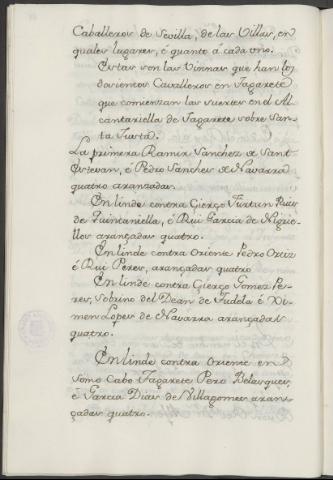 Caballeros de Sevilla, de las Villas, en
quales lugares, é quanto á cada uno.
Estas son las Vinnas que han los
docientos Cavalleros en Tagarete
que comienzan las suertes en el Al
cantariella de Tagarete sobre San-
ta Justa.
La primera Ramir Sanchez de Sant
Estevan, e Pedro Sanches de Navarra
quatro aranzadas.
En linde contra Gierço Furtun Ruis
de Quintaniella, é Rui Garcia de
lles arançadas quatro.
En linde contra Oriente Pedro Ortiz
é Rui Peres, arançadas quatro
En linde contra Gierço Gomez Pe-
res, sobrino del Dean de Tudela é Xi-
men Lopes de Navarra arançadas
quatro.
En linde contra Oriente en
somo Cabo Tagarete Pero Velasques,
é Garcia Dias de Villagomes aran-
çadas quatro.